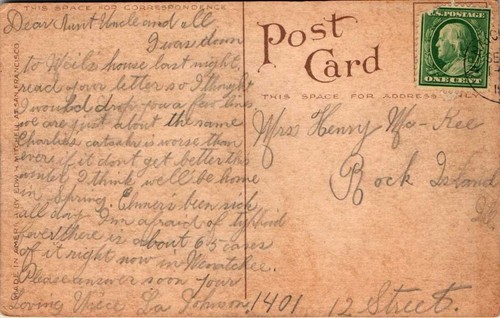 THIS SPACE FOR CORRESPONDENCE
Dear Aunt Uncle and all
I was down
to Weils house last night
read your letter so I thought
I would drop you a few lines
we are just about the same
Charlies catarrh is worse than
ever if it dont get better this
winter I think we'll be home
in Spring. Elmers been sick
all day I'm afraid of typhoid
fever there is about 65 cases
of it right now in Wenatchee.
Please answer soon your
Loving Niece La Johnson
1401 12 Street.
Post
Card
THIS SPACE FOR ADDRESS ONLY
Mrs Henry Mc-Kee
Rock Island
Ill
U.S. POSTAGE
ONE CENT
MADE IN AMERICA BY EDW. H. MITCHELL, SAN FRANCISCO